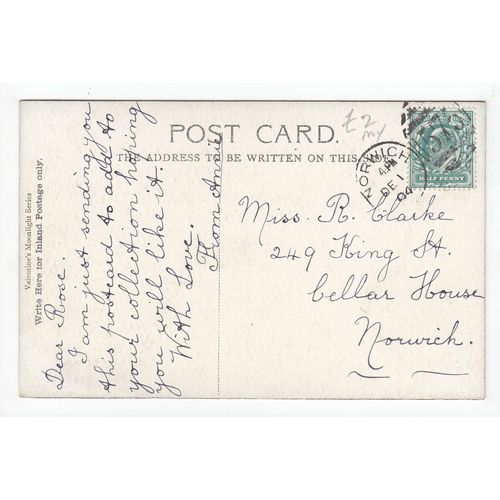 Valentine's Moonlight Series
Write Here for Inland Postage only.
POST CARD.
THE ADDRESS TO BE WRITTEN ON THIS SIDE
Dear Rose.
I am just sending you
this postcard to add to
your collection hoping
you will like it.
With Love.
From Annie
£2
NORWICH
4 PM
DE 1
04
HALF PENNY
Miss. R. Clarke
249 King St.
Cellar House
Norwich.